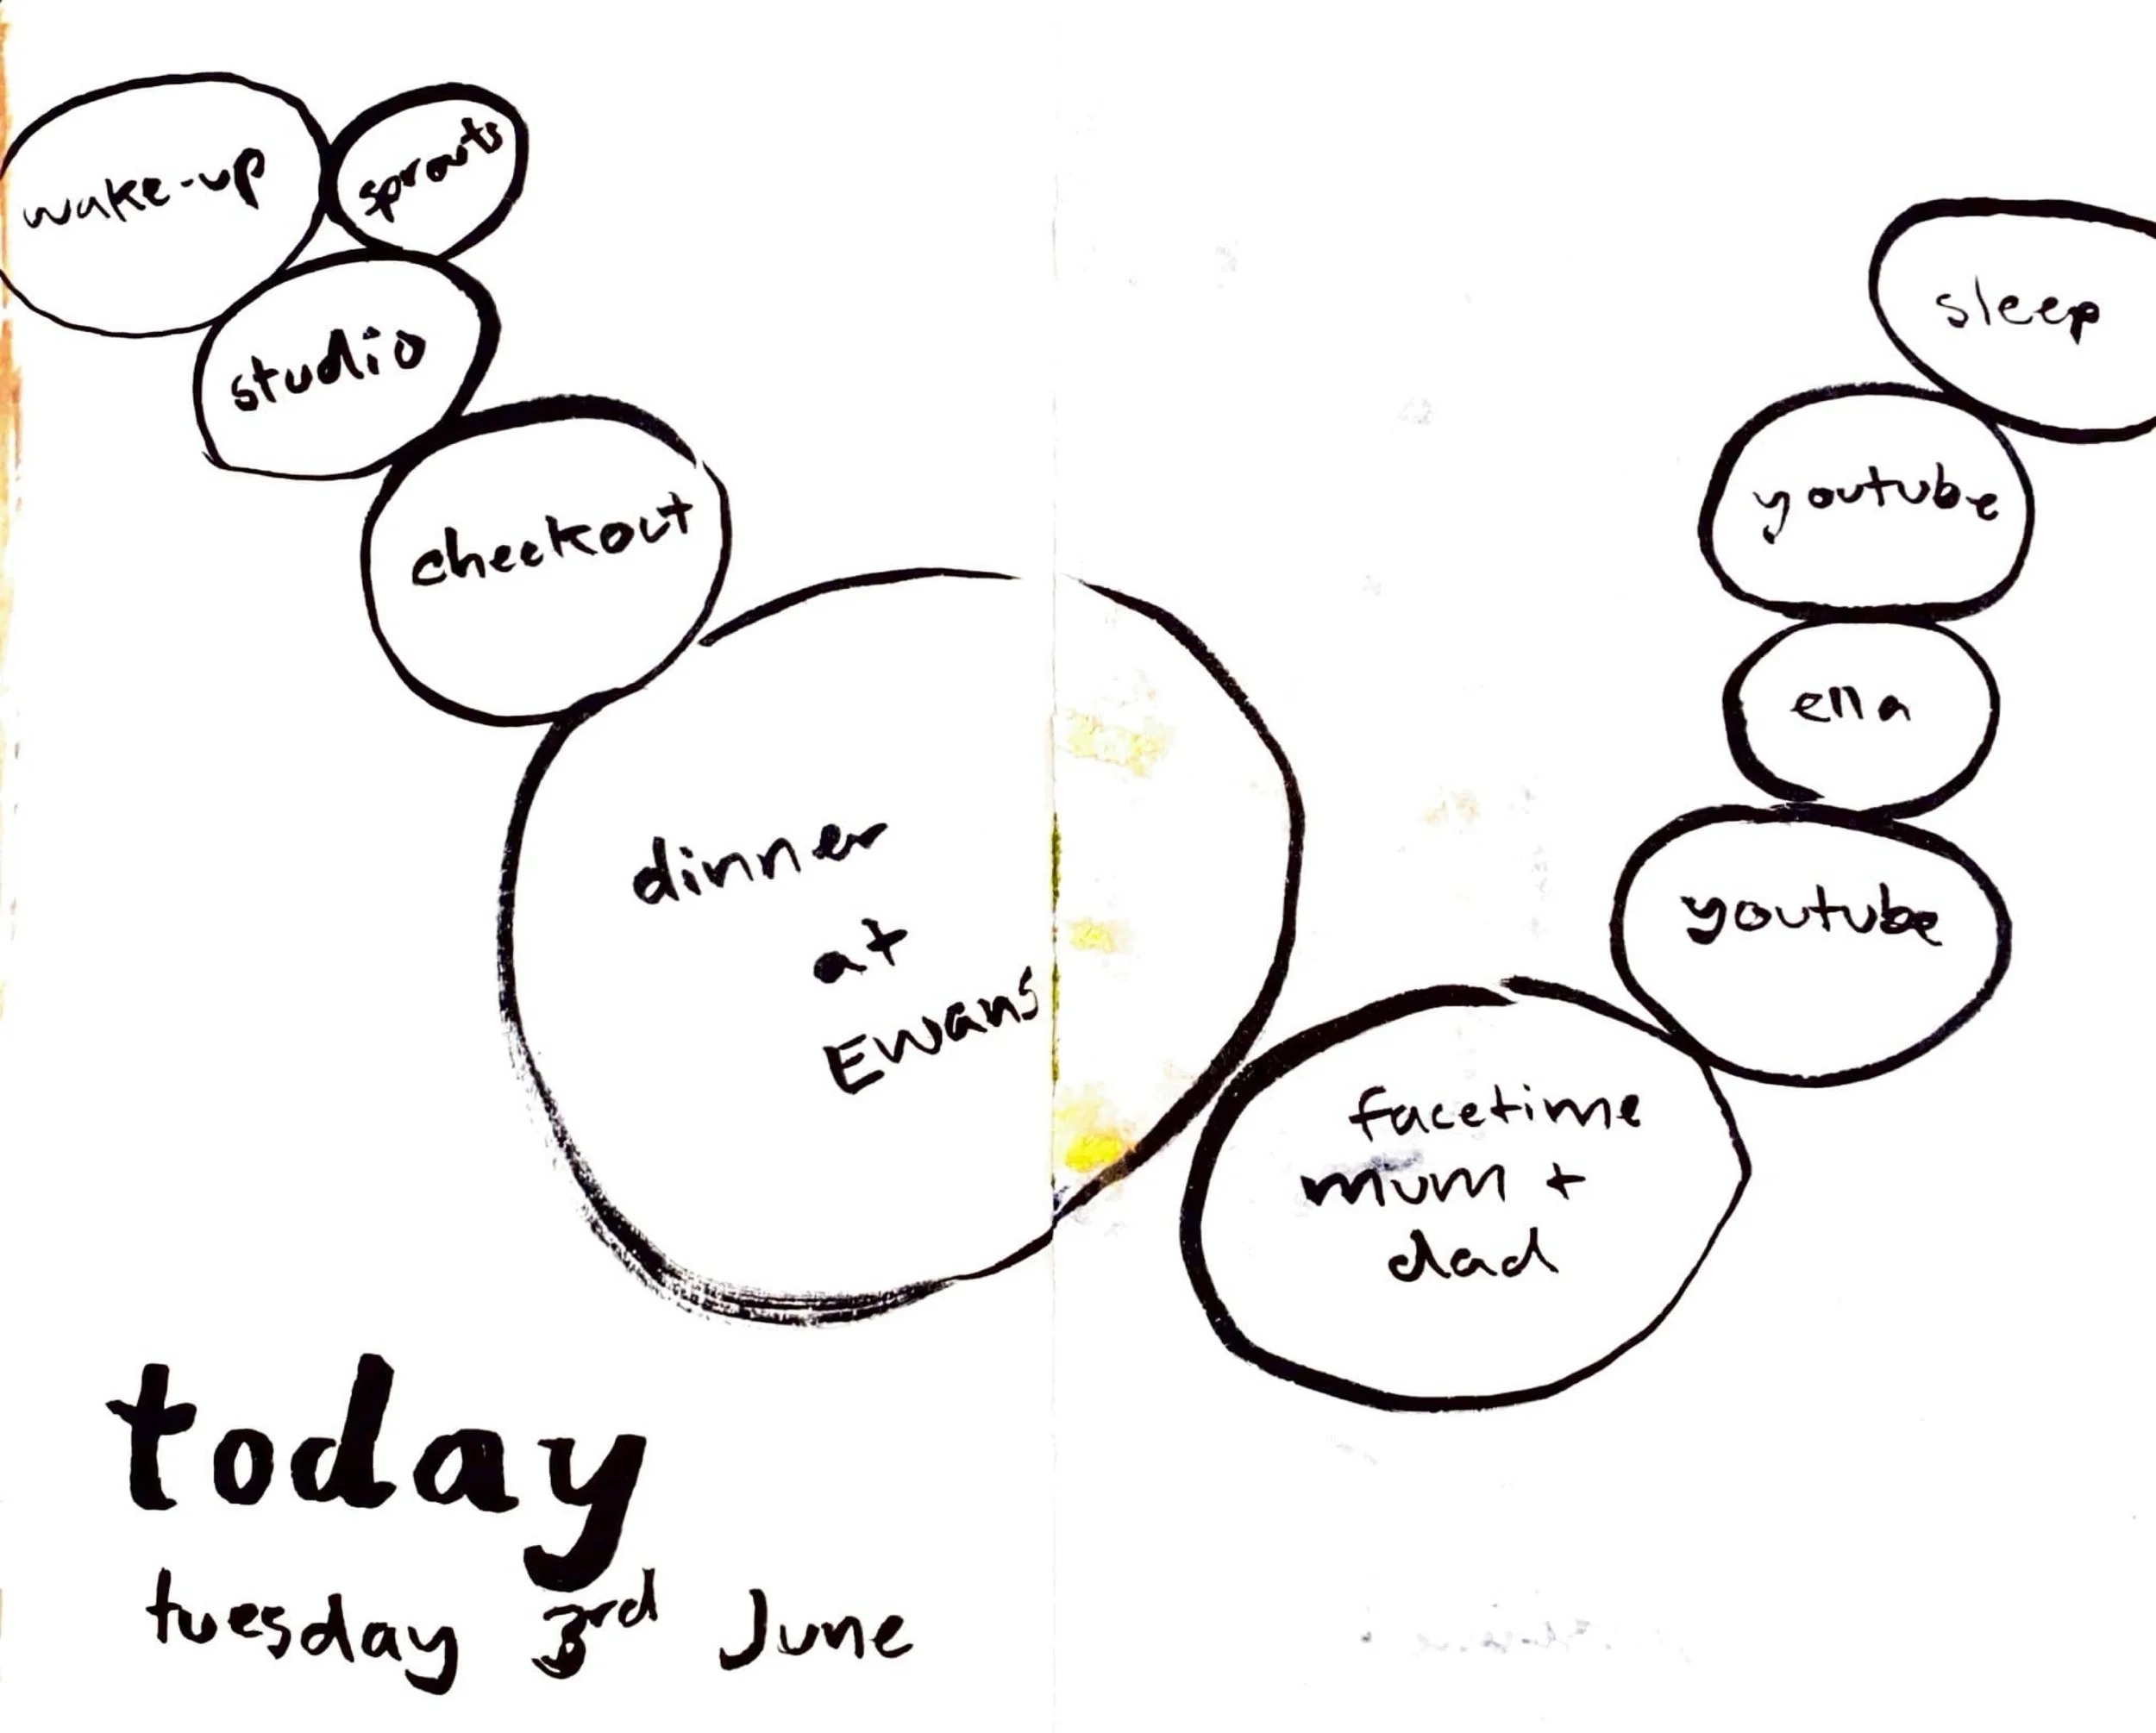 wake-up
sprouts
studio
checkout
dinner
at
Ewans
facetime
mum +
dad
youtube
ella
youtube
sleep
today
tuesday 3rd June